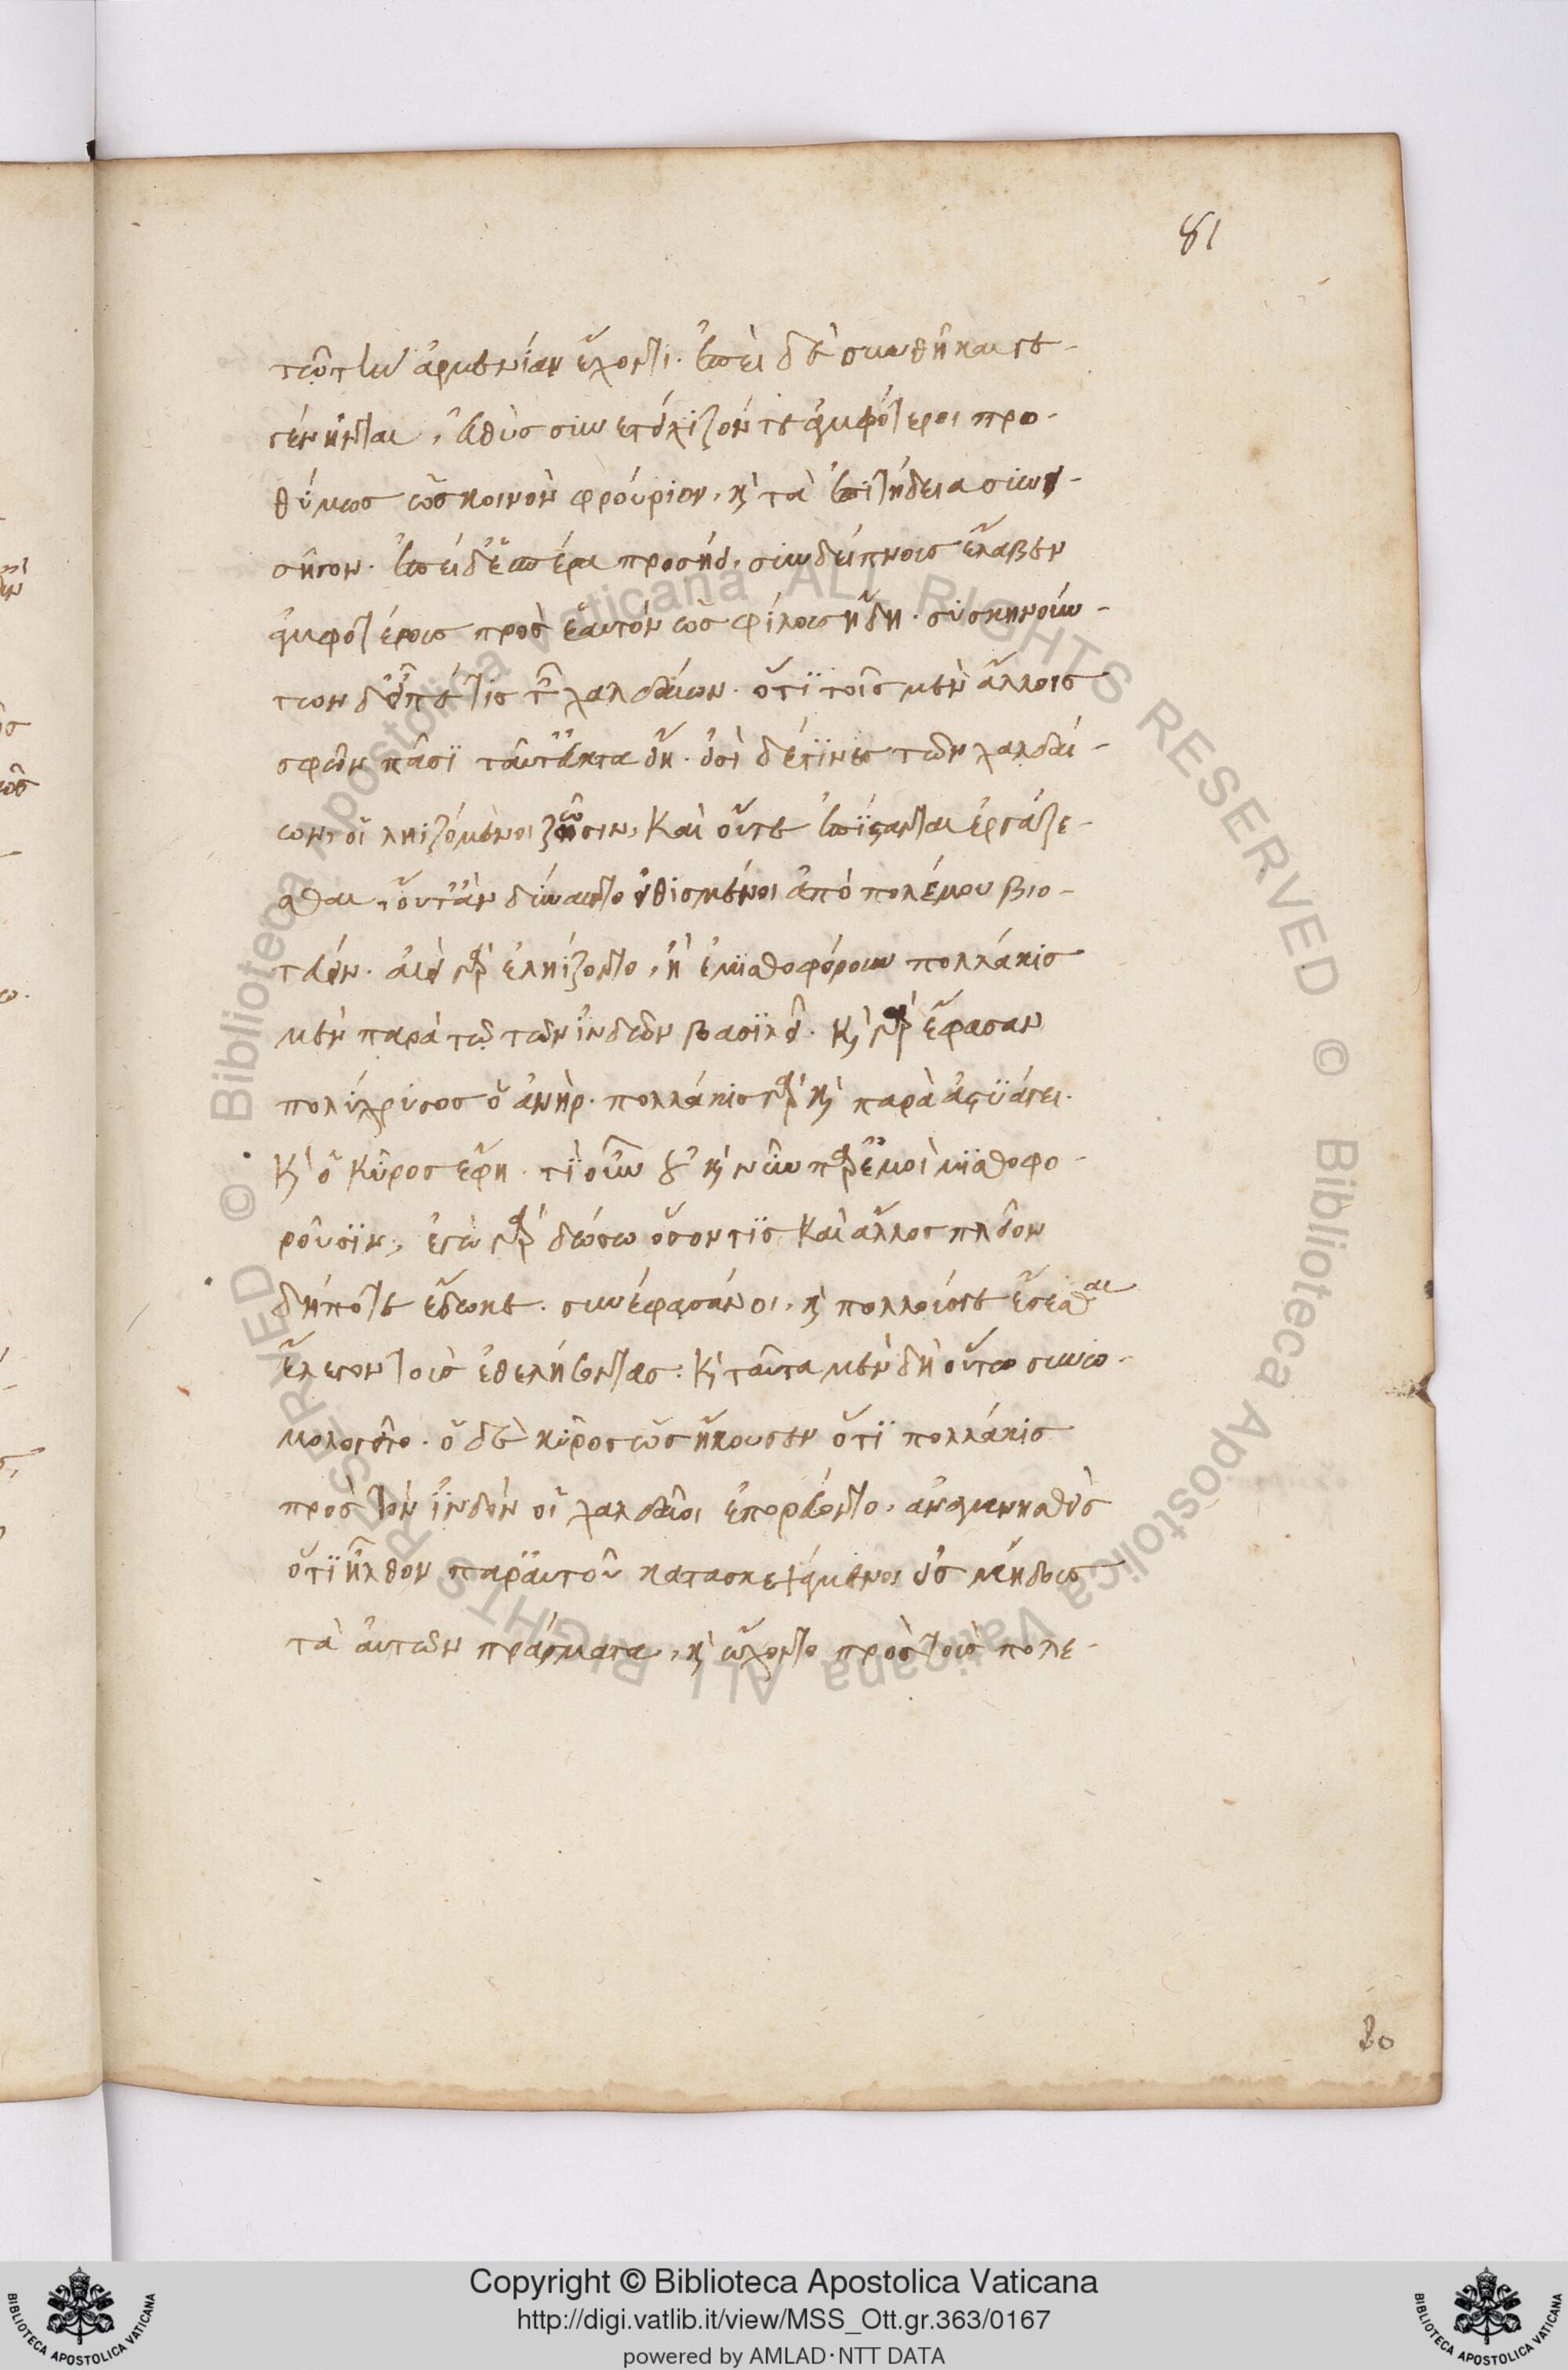 81
τῷ τὴν ἀρμενίαν ἔχοντι. ἐπεὶ δὲ συνθῆκαι γε-
γένηνται, εὐθὺς συνετείχιζόν τε ἀμφότεροι προ-
θύμως ὡς κοινὸν φρούριον, κ̀ τὰ ἐπιτήδεια συνει-
σῆγον. ἐπεὶ δ' ἑσπέρα προσήει, συνδείπνους ἔλαβεν
ἀμφοτέρους πρὸς ἑαυτὸν ὡς φίλους ἤδη. συσκηνούν-
των δ' εἶπέ τις τῶν χαλδαίων. ὅτϊ τοῖς μὲν ἄλλοις
σφῶν πᾶσϊ ταῦτ' εὐκτὰ εἴη. εἰσὶ δέ τϊνες τῶν χαλδαί-
ων, οἳ ληϊζόμενοι ζῶσιν, καὶ οὔτε ἐπίστανται ἐργάζε-
σθαι, οὔτ' ἂν δύναιντο εἰθισμένοι ἀπὸ πολέμου βιο-
τεύειν. αἰεὶ γὰρ ἐληίζοντο, ἢ ἐμϊσθοφόρουν πολλάκις
μὲν παρὰ τῷ τῶν ἰνδῶν βασϊλεῖ. κ̀ γὰρ ἔφασαν
πολύχρυσος ὁ ἀνὴρ. πολλάκις γὰρ κ̀ παρὰ ἀστϋάγει.
κ̀ ὁ κῦρος ἔφη. τὶ οὖν οὐ κ̀ νῦν παρ' ἐμοὶ μϊσθοφο-
ροῦσϊν; ἐγὼ γὰρ δώσω ὅσον τϊς καὶ ἄλλος πλεῖον
δήποτε ἔδωκε. συνέφασάν οι, κ̀ πολλούς γε ἔσεσθαι
ἔλεγον τοὺς ἐθελήσοντας. κ̀ ταῦτα μὲν δὴ οὕτω συνω-
μολογεῖτο. ὁ δὲ κῦρος ὡς ἤκουσεν ὅτϊ πολλάκις
πρὸς τὸν ἰνδὸν οἱ χαλδαῖοι ἐπορεύοντο, ἀναμνησθεὶς
ὅτϊ ἦλθον παρ' αὐτοῦ κατασκεψάμενοι εἰς μήδους
τὰ αὐτῶν πράγματα, κ̀ ᾤχοντο πρὸς τοὺς πολε-
80
© Biblioteca Apostolica Vaticana ALL RIGHTS RESERVED © Biblioteca Apostolica Vaticana ALL RIGHTS RESERVED
Copyright © Biblioteca Apostolica Vaticana
http://digi.vatlib.it/view/MSS_Ott.gr.363/0167
powered by AMLAD·NTT DATA
BIBLIOTECA APOSTOLICA VATICANA
BIBLIOTECA APOSTOLICA VATICANA